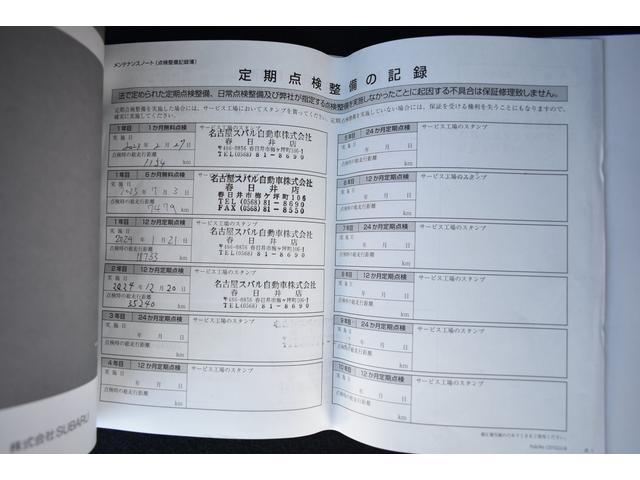 メンテナンスノート(点検整備記録簿)
定期点検整備の記録
法で定められた定期点検整備、日常点検整備及び弊社が指定する点検整備を実施しなかったことに起因する不具合は保証修理致しません。
定期点検整備を実施した場合には、サービス工場においてスタンプを貰ってください。定期点検整備を実施していない場合には、保証を受ける権利を失うことにもなりますので、
確実に実施してください。
1年目 1か月無料点検 サービス工場のスタンプ
実施日
2023年2月27日
点検時の総走行距離
1154 km
名古屋スバル自動車株式会社
春日井店
〒486-8856 春日井市梅ケ坪町106-1
TEL(0568)81-8690
1年目 6か月無料点検 サービス工場のスタンプ
実施日
2023年7月3日
点検時の総走行距離
7479 km
名古屋スバル自動車株式会社
春日井店
春日井市梅ケ坪町106
TEL (0568) 81-8690
FAX (0568) 81-8550
1年目 12か月定期点検 サービス工場のスタンプ
実施日
2024年1月21日
点検時の総走行距離
18733 km
名古屋スバル自動車株式会社
春日井店
〒486-8856 春日井市梅ケ坪町106-1
TEL(0568)81-8690
2年目 12か月定期点検 サービス工場のスタンプ
実施日
2024年12月20日
点検時の総走行距離
35240 km
名古屋スバル自動車株式会社
春日井店
〒486-8856 春日井市梅ケ坪町106-1
TEL(0568)81-8690
3年目 24か月定期点検 サービス工場のスタンプ
実施日
年 月 日
点検時の総走行距離
km
4年目 12か月定期点検 サービス工場のスタンプ
実施日
年 月 日
点検時の総走行距離
km
5年目 24か月定期点検 サービス工場のスタンプ
実施日
年 月 日
点検時の総走行距離
km
6年目 12か月定期点検 サービス工場のスタンプ
実施日
年 月 日
点検時の総走行距離
km
7年目 24か月定期点検 サービス工場のスタンプ
実施日
年 月 日
点検時の総走行距離
km
8年目 12か月定期点検 サービス工場のスタンプ
実施日
年 月 日
点検時の総走行距離
km
9年目 24か月定期点検 サービス工場のスタンプ
実施日
年 月 日
点検時の総走行距離
km
10年目 12か月定期点検 サービス工場のスタンプ
実施日
年 月 日
点検時の総走行距離
km
株式会社SUBARU